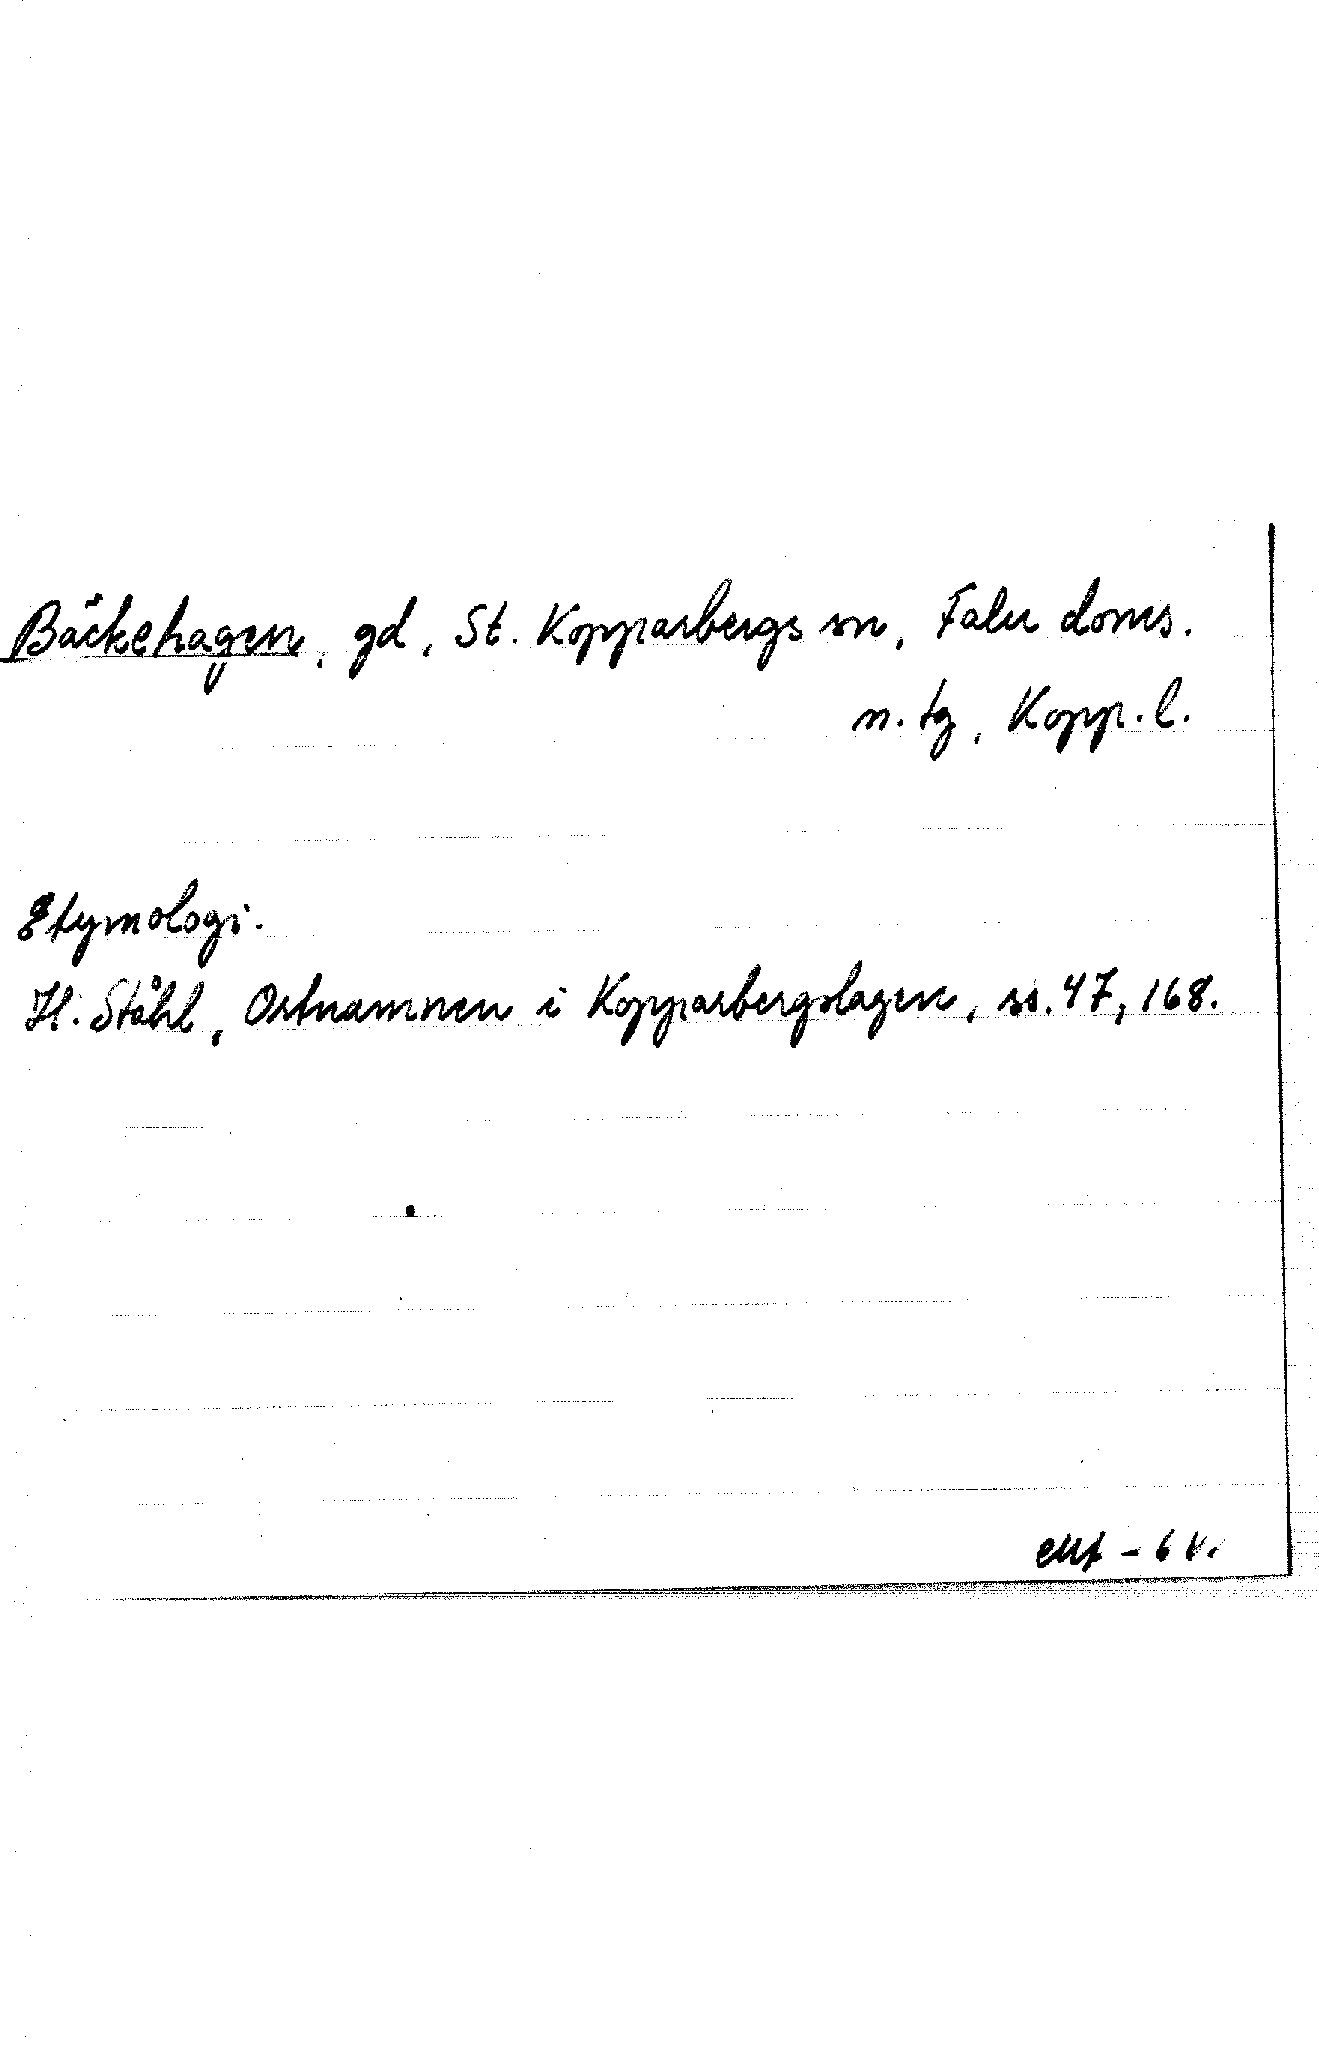 Bäckehagen, gd, St. Kopparbergs sn, Falu doms.
n. tg, Kopp. l.
Etymologi.
H. Ståhl, Ortnamnen i Kopparbergslagen, ss. 47, 168.